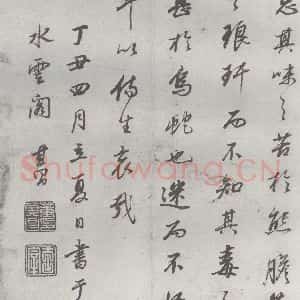 其味之苦於熊膽
琅玕而不知其毒
甚於烏蛇也迷而不
以傷生哀哉
丁丑四月立夏日書于
水雲閣
Shufawang.CN